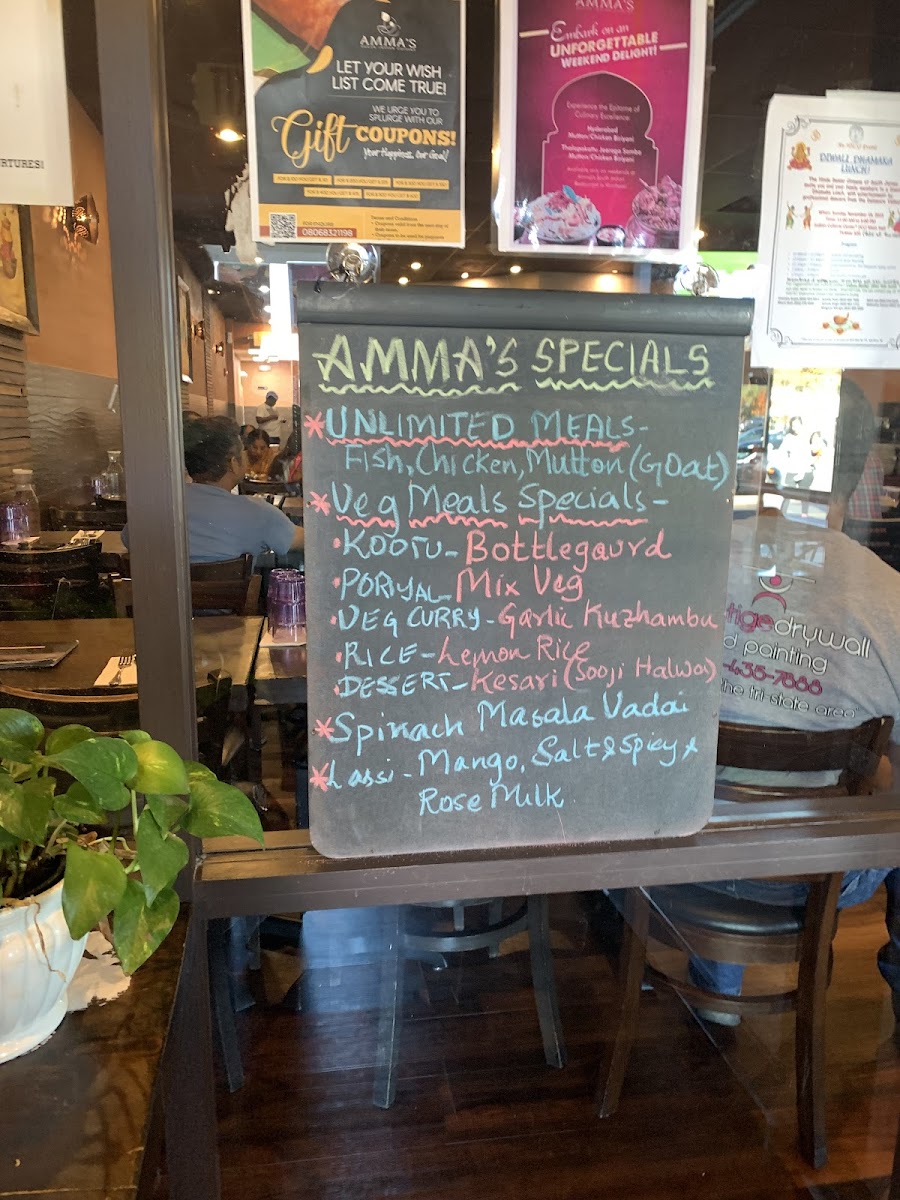 RTURES!
AMMA'S
LET YOUR WISH
LIST COME TRUE!
WE URGE YOU TO
SPLURGE WITH OUR
Gift COUPONS!
Your Happiness, Our Goal!
08068321198
Terms and Conditions
AMMA'S
Embark on an
UNFORGETTABLE
WEEKEND DELIGHT!
Experience the Epitome of
Culinary Excellence
Hyderabad
Mutton/Chicken Biriyani
Thalapakattu Jeeraga Samba
Mutton/Chicken Biriyani
DIWALI DHAMAKA
LUNCH!
AMMA'S SPECIALS
*UNLIMITED MEALS-
Fish, Chicken, Mutton (GOat)
*Veg Meals Specials-
•KOOTU- Bottlegaurd
•PORIYAL- Mix Veg
•VEG CURRY- Garlic Kuzhambu
•RICE- Lemon Rice
•DESSERT- Kesari (Sooji Halwa)
*Spinach Masala Vadai
*Lassi- Mango, Salt & Spicy &
Rose Milk
tigedrywall
d painting
-435-7888
the tri-state area"